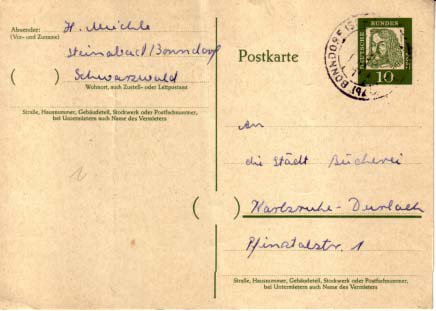 Absender:
(Vor- und Zuname)
H.
Steinabad/Bonndorf
Schwarzwald
( )
Wohnort, auch Zustell- oder Leitpostamt
Straße, Hausnummer, Gebäudeteil, Stockwerk oder Postfachnummer,
bei Untermietern auch Name des Vermieters
Postkarte
DEUTSCHE BUNDES
10
BONNDORF
An
die Städt Bücherei
( ) Karlsruhe-Durlach
Pfinztalstr. 1
Straße, Hausnummer, Gebäudeteil, Stockwerk oder Postfachnummer,
bei Untermietern auch Name des Vermieters